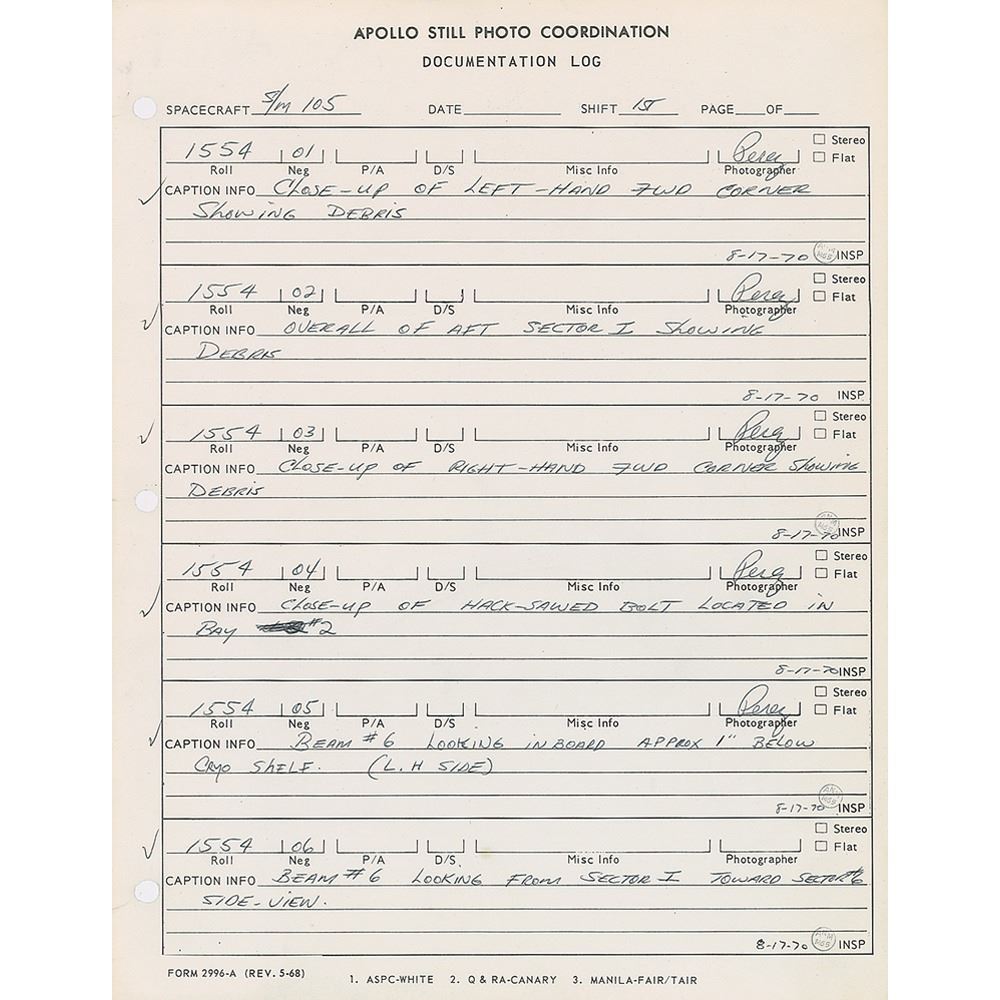 APOLLO STILL PHOTO COORDINATION
DOCUMENTATION LOG
SPACECRAFT S/M 105 DATE SHIFT 1ST PAGE OF
1554 01 Perez Stereo
Roll Neg P/A D/S Misc Info Photographer Flat
CAPTION INFO CLOSE-UP OF LEFT-HAND FWD CORNER
SHOWING DEBRIS
8-17-70 INSP
1554 02 Perez Stereo
Roll Neg P/A D/S Misc Info Photographer Flat
CAPTION INFO OVERALL OF AFT SECTOR I SHOWING
DEBRIS
8-17-70 INSP
1554 03 Perez Stereo
Roll Neg P/A D/S Misc Info Photographer Flat
CAPTION INFO CLOSE-UP OF RIGHT-HAND FWD CORNER SHOWING
DEBRIS
8-17-70 INSP
1554 04 Perez Stereo
Roll Neg P/A D/S Misc Info Photographer Flat
CAPTION INFO CLOSE-UP OF HACK-SAWED BOLT LOCATED IN
BAY #2
8-17-70 INSP
1554 05 Perez Stereo
Roll Neg P/A D/S Misc Info Photographer Flat
CAPTION INFO BEAM #6 LOOKING INBOARD APPROX 1" BELOW
CRYO SHELF. (L.H SIDE)
8-17-70 INSP
1554 06 Stereo
Roll Neg P/A D/S Misc Info Photographer Flat
CAPTION INFO BEAM #6 LOOKING FROM SECTOR I TOWARD SECTOR #6
SIDE-VIEW.
8-17-70 INSP
FORM 2996-A (REV. 5-68) 1. ASPC-WHITE 2. Q & RA-CANARY 3. MANILA-FAIR/TAIR